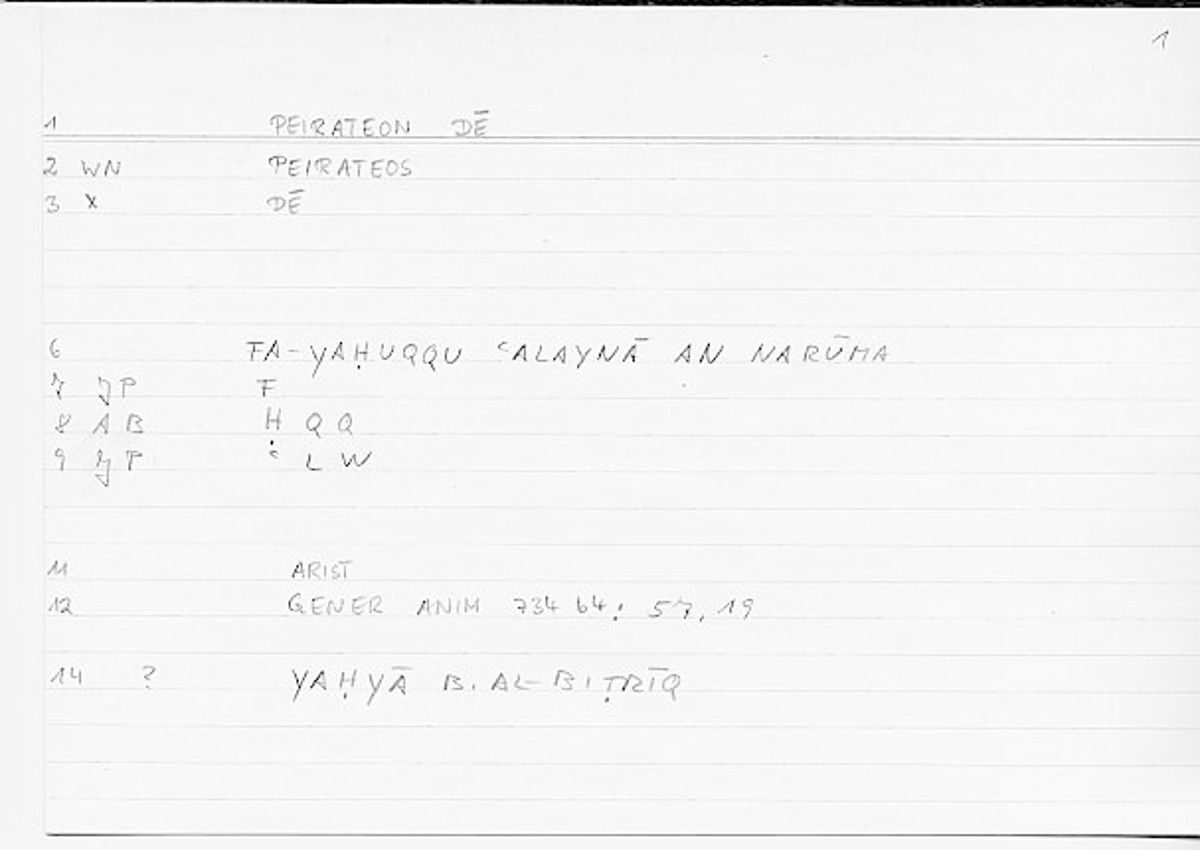 1
1 PEIRATEON DĒ
2 WN PEIRATEOS
3 X DĒ
6 FA-YAḤUQQU ʿALAYNĀ AN NARŪMA
7 JP F
8 AB Ḥ Q Q
9 JP ʿ L W
11 ARIST
12 GENER ANIM 734 b4; 57,19
14 ? YAḤYĀ B. AL-BIṬRĪQ